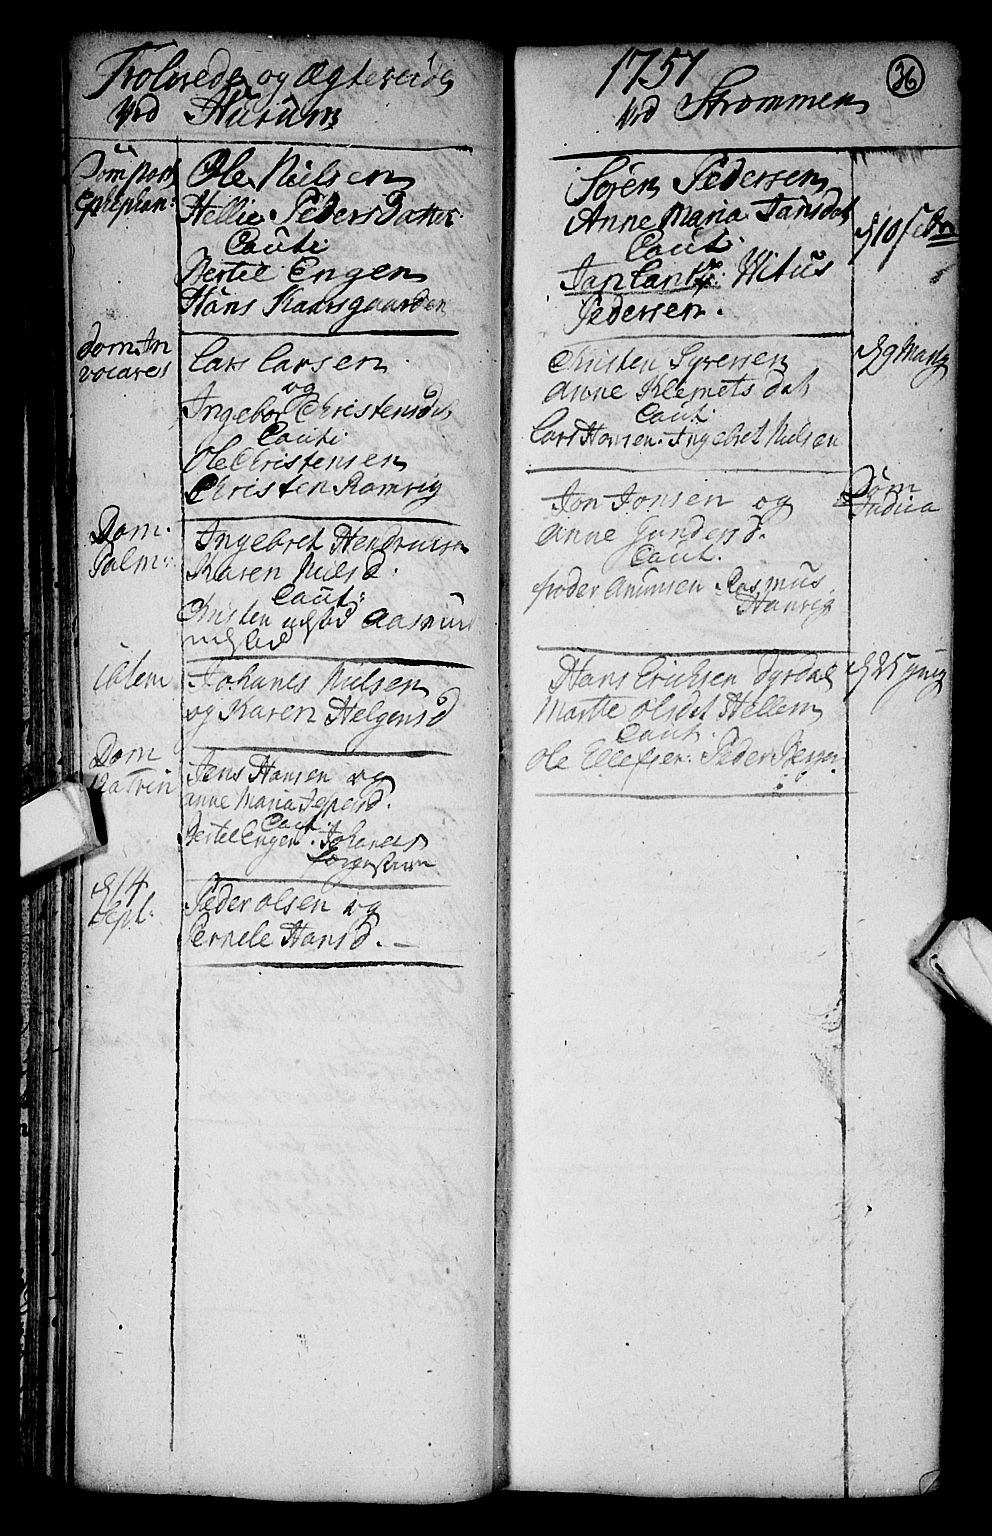 Trolovede og Ægteviede
Ved Hurum
Dom post
Epiphan:
Ole Nielsen
Hellie Peders Datter
Cauti:
Bertel Engen
Hans Kaarsgaarden
Dom. In
vocavit
Lars Larsen
og
Ingebor Christensd
Cauti:
Ole Christensen
Christen Ramvig
Dom.
Palm:
Ingebret Hendrichsen
Karen Nielsd.
Caut:
Christen Aasmund
idem
Johanes Nielsen
og Karen Helgensd
Dom
Jens Hansen og
Anne Maria Jepsd.
Caut:
Bertel Engen. Johanes
d 14
Sept:
Peder Olsen og
Pernele Hansd.
1751
36
Ved Strømmen
Sören Pedersen
Anne Maria Jansdat
Caut:
Witus
Pedersen.
d 10 Febr
Christen Syversen
Anne Klemets dat
Caut:
Lars Hansen. Ingebret Nielsen
d 9 Marty
Jon Jonsen og
Anne Gundersd.
Caut.
Peder Amunsen Rasmus
Hanvig
Dom
Judica
Hans Ericksen Dyrdal
Marthe Olsdat Hellem
Caut:
Ole Ellefsen: Peder
d 25 Juny